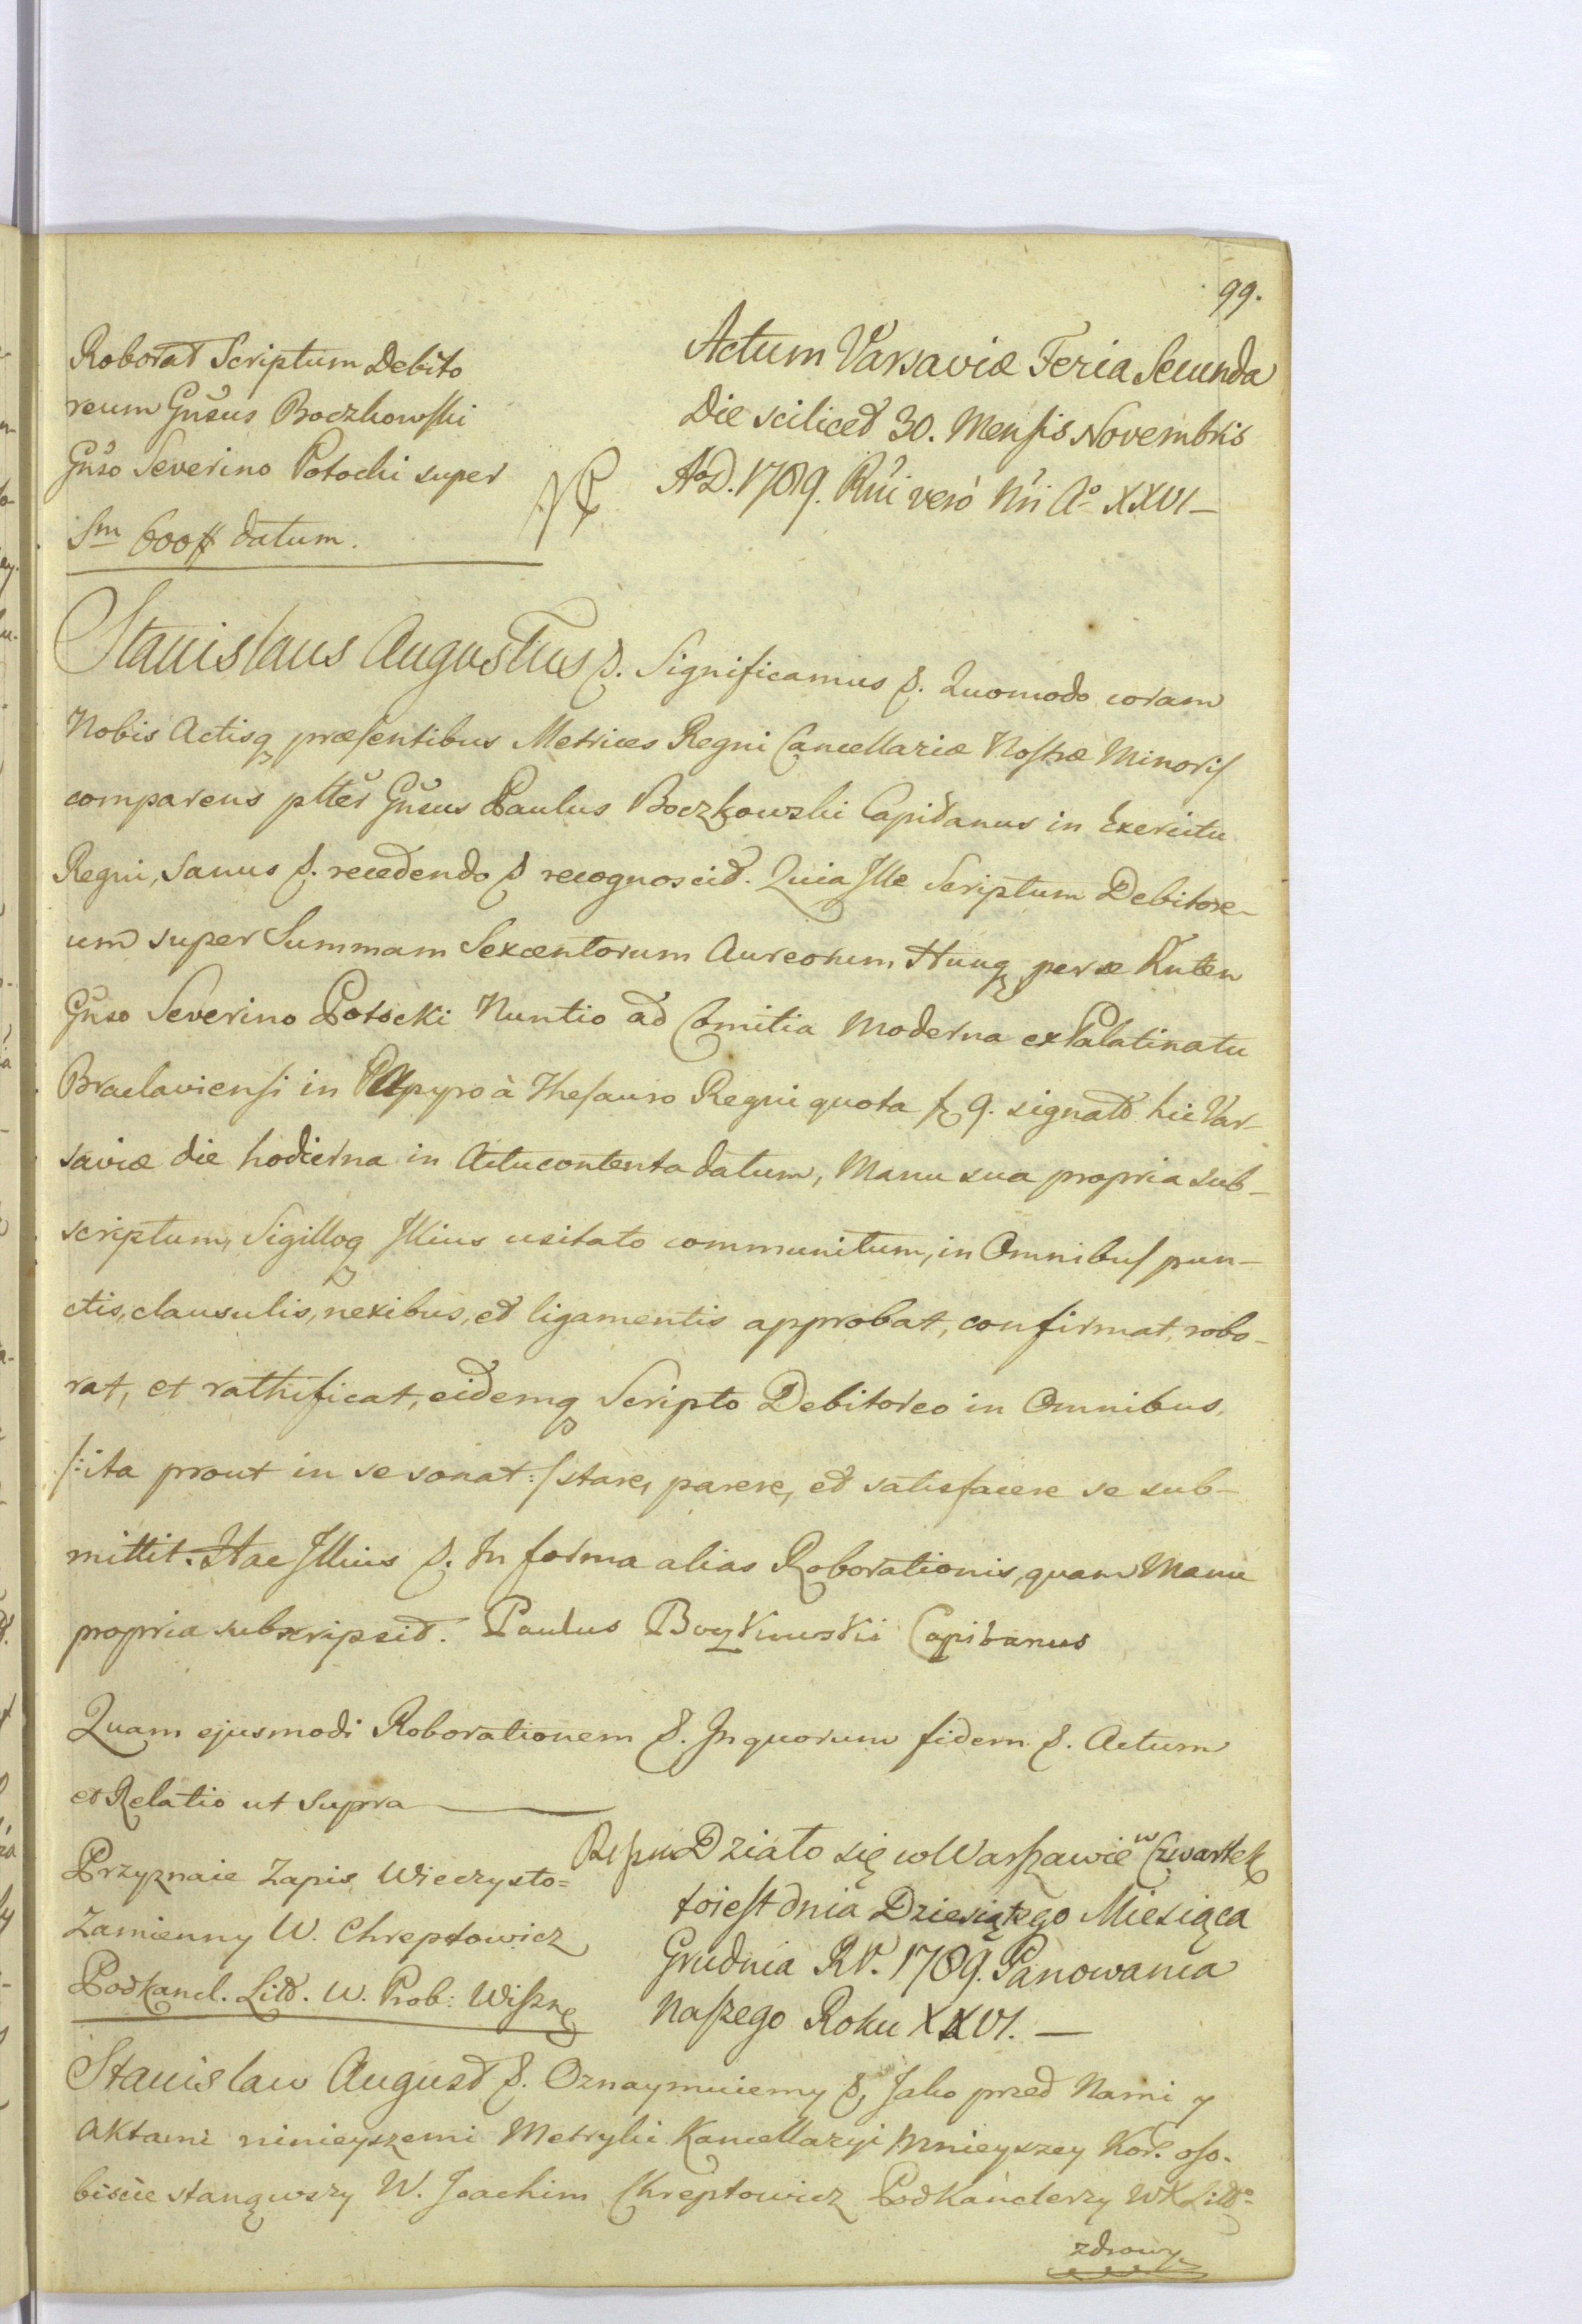 99.
Roborat Scriptum Debito
reum Gnsus Boczkowski
Gnso Severino Potocki super
Sm 600# datum.
Actum Varsaviæ Feria Secunda
Die scilicet 30. Mensis Novembris
AoD. 1789. Rni verò Nri Ao XXVI—
Stanislaus Augustus &. Significamus &. Quomodo coram
Nobis Actisq præsentibus Metrices Regni Cancellariæ Nostræ Minoris
comparens pltter Gnsus Paulus Boczkowski Capitanus in Exercitu
Regni, sanus &. recedendo & recognoscit. Quia Ille Scriptum Debitore-
um super Summam Sexcentorum Aureorum Hung per se
Gnso Severino Potocki Nuntio ad Comitia Moderna ex Palatinatu
Braclaviensi in Papyro à Thesauro Regni quota 9. signat hic Var-
saviæ die hodierna in Actu contenta datum, Manu sua propria sub-
scriptum, Sigilloq Illius usitato communitum, in Omnibus pun-
ctis, clausulis, nexibus, et ligamentis approbat, confirmat, robo-
rat, et rathificat, eidemq Scripto Debitoreo in Omnibus,
/:ita prout in se sonat:/ stare, parere, et satisfacere se sub-
mittit. Hac Illius &. In forma alias Roborationis, quam Manu
propria subscripsit. Paulus Boczkowski Capitanus
Quam ejusmodi Roborationem &. In quorum fidem &. Actum
et Relatio ut supra
Przyznaie Zapis Wieczysto=
Zamienny W. Chreptowicz
Podkancl. Litt. W. Prob: Wiszn
Działo się w Warszawie w Czwartek
toiest dnia Dziesiątego Miesiąca
Grudnia RP. 1789. Panowania
naszego Roku XXVI. —
Stanislaw August &. Oznaymuiemy &, Jako przed Nami y
Aktami ninieyszemi Metryki Kancellaryi Mnieyszey Kor. oso-
biście stanąwszy W. Joachim Chreptowicz Podkanclerzy WXLitt
zdrowy